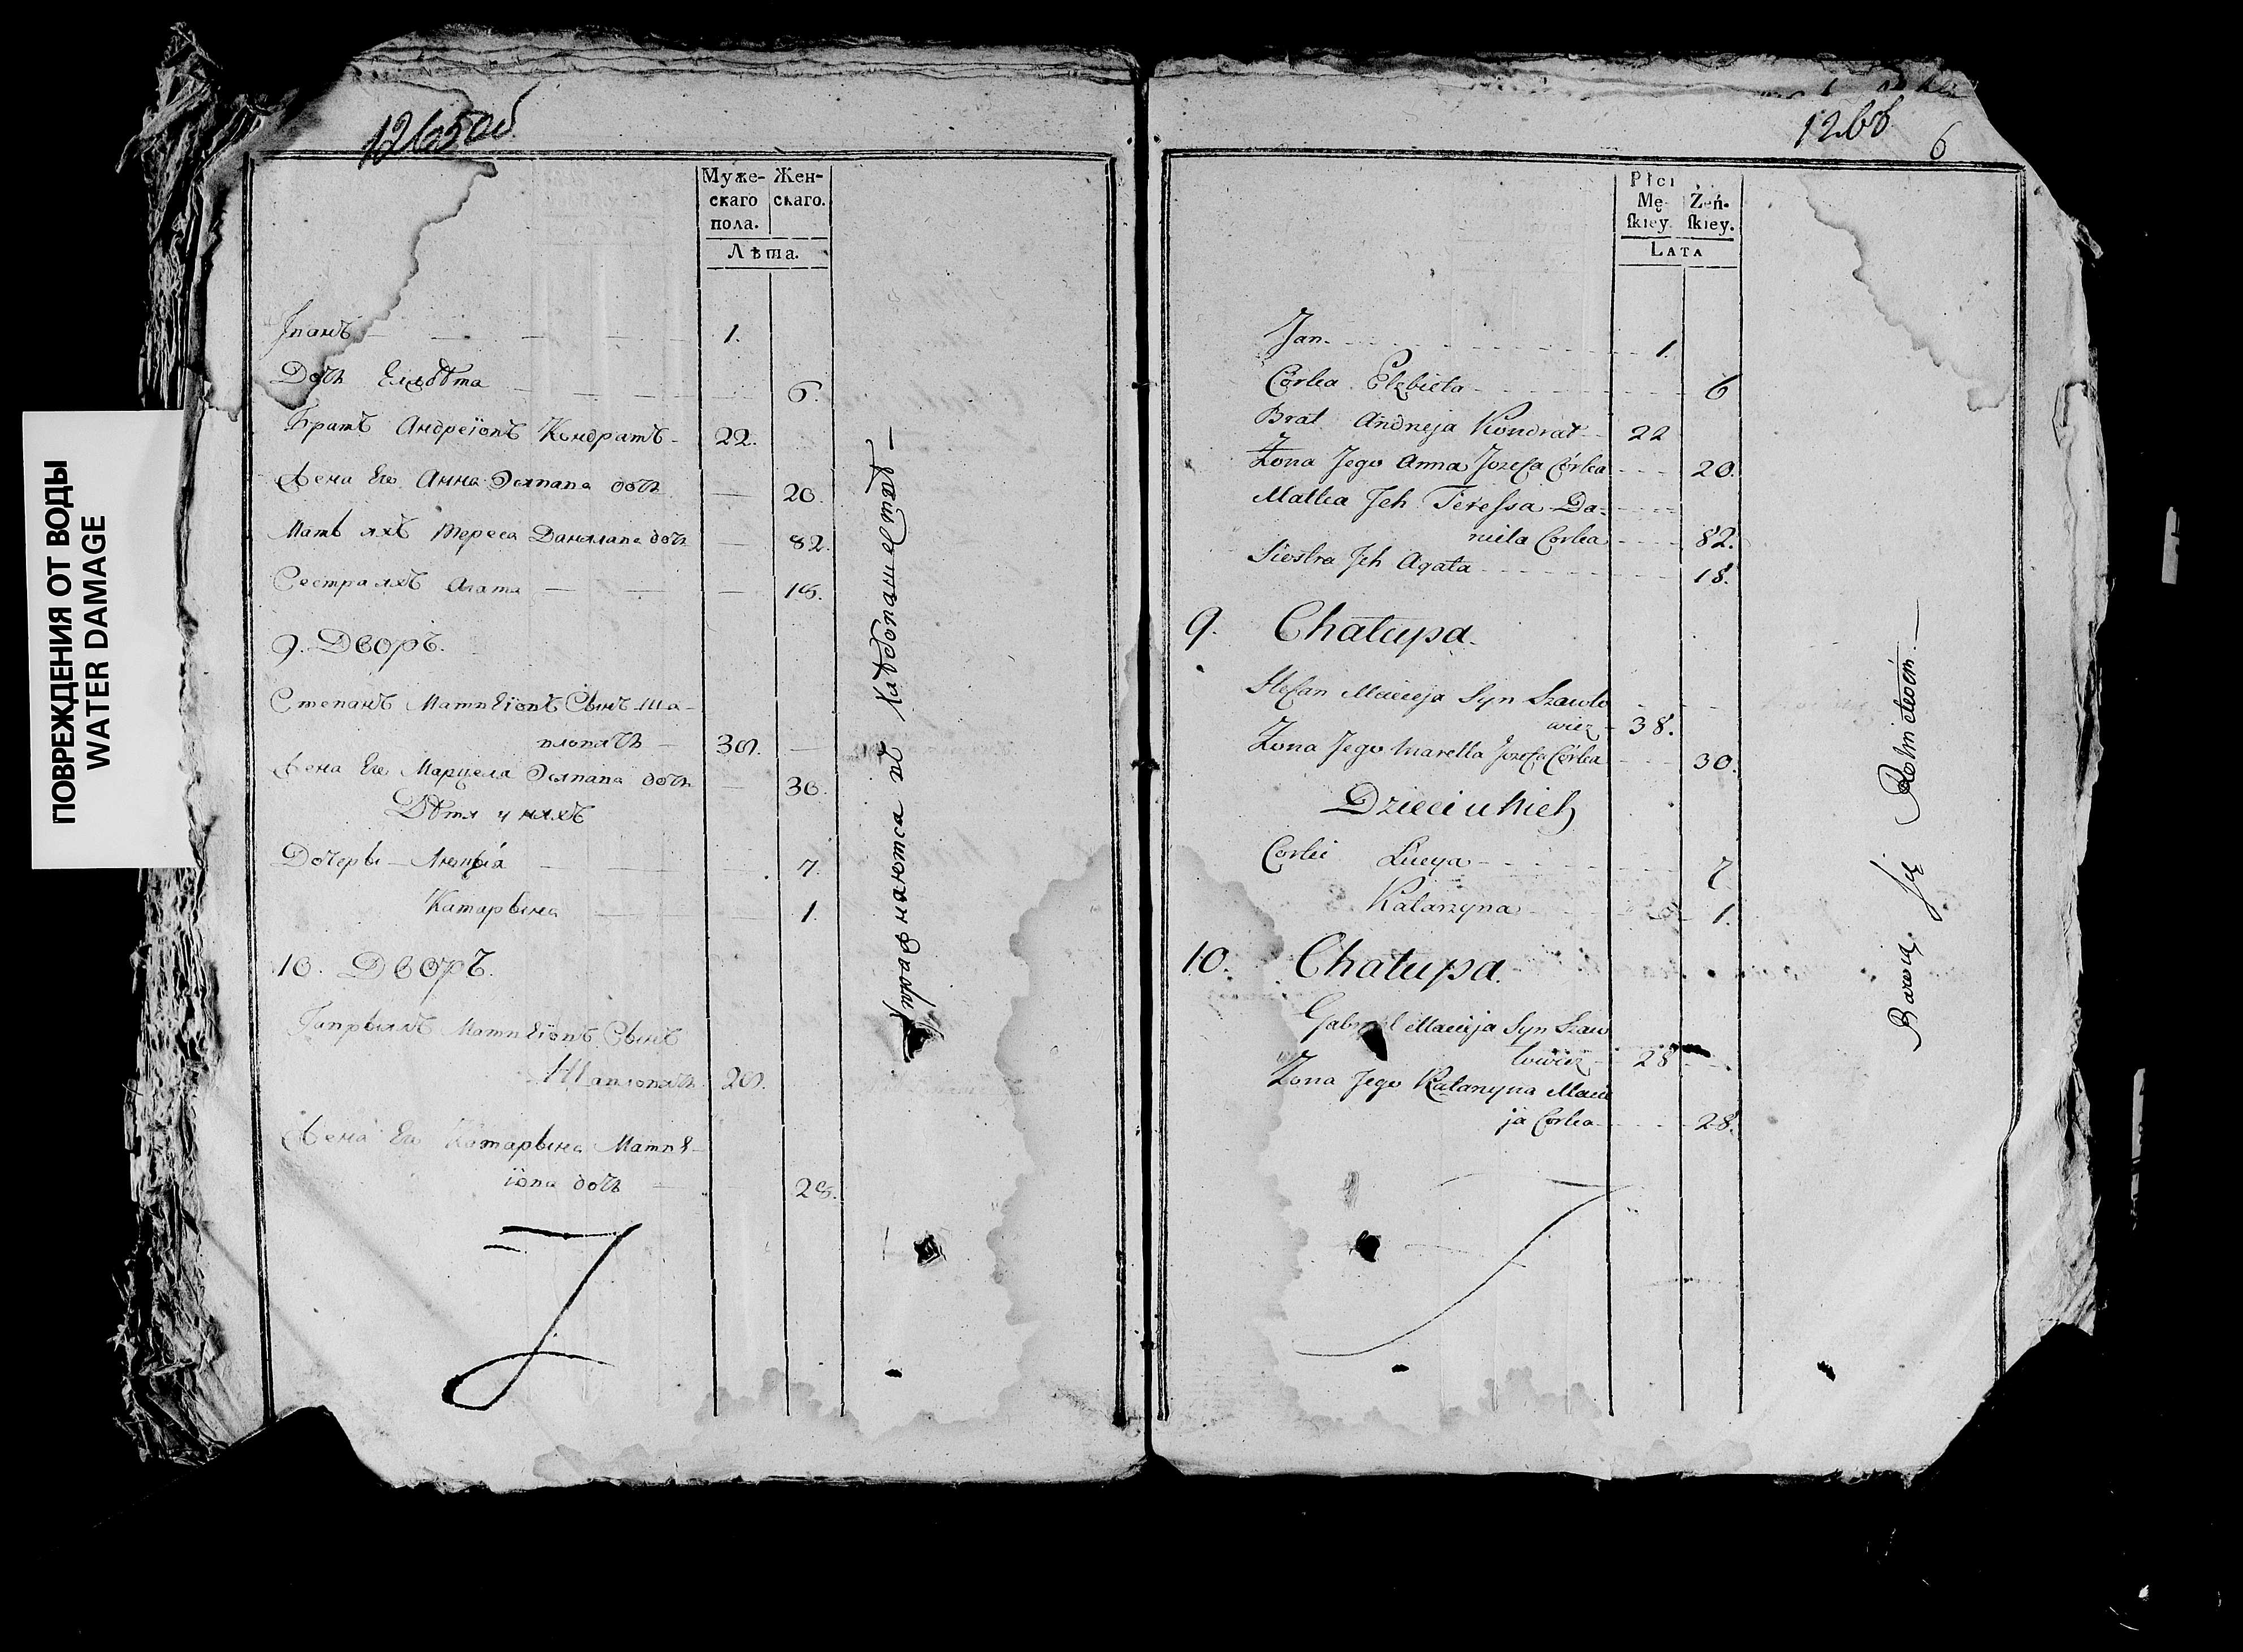 ПОВРЕЖДЕНИЯ ОТ ВОДЫ
WATER DAMAGE
1265об
Муже-
скаго
пола.
Жен-
скаго.
Лѣта.
Іванъ 1.
Дочь Елзбѣта 6.
Братъ Андреіовъ Кондратъ 22.
Жена Его Анна Осипава дочь 20.
Мать ихъ Тереса Данилава дочь 82.
Сестра ихъ Агата 18.
9. Дворъ.
Степанъ Матвѣіовъ Сынъ Ша-
вловичь 38.
Жена Его Марцела Осипава дочь 30.
Дѣти у нихъ
Дочеры Люцыя 7.
Катарына 1.
10. Дворъ.
Гаврылъ Матвѣіовъ Сынъ
Шавловичь 28.
Жена Его Катарына Матвѣ-
іова дочь 28.
Упражнаютса въ Хлѣбопашествѣ —
1266
6
Płci
Mę-
ſkiey.
Żeń-
ſkiey.
LATA
Jan 1.
Córka Elzbieta 6
Brat Andrzeja Kondrat 22
Żona Jego Anna Jozefa Córka 20.
Matka Jch Teressa Da-
niela Corka 82.
Siostra Jch Agata 18.
9. Chałupa.
Stefan Macieja Syn Szawło
wicz 38.
Żona Jego Marcella Jozefa Córka 30.
Dzieci u Nich
Corki Łucya 7
Katarzyna 1.
10. Chałupa.
Gabryel Macieja Syn Szaw
łowicz 28
Żona Jego Katarzyna Macie
ja Corka 28.
Bawią się Rolnictwem —